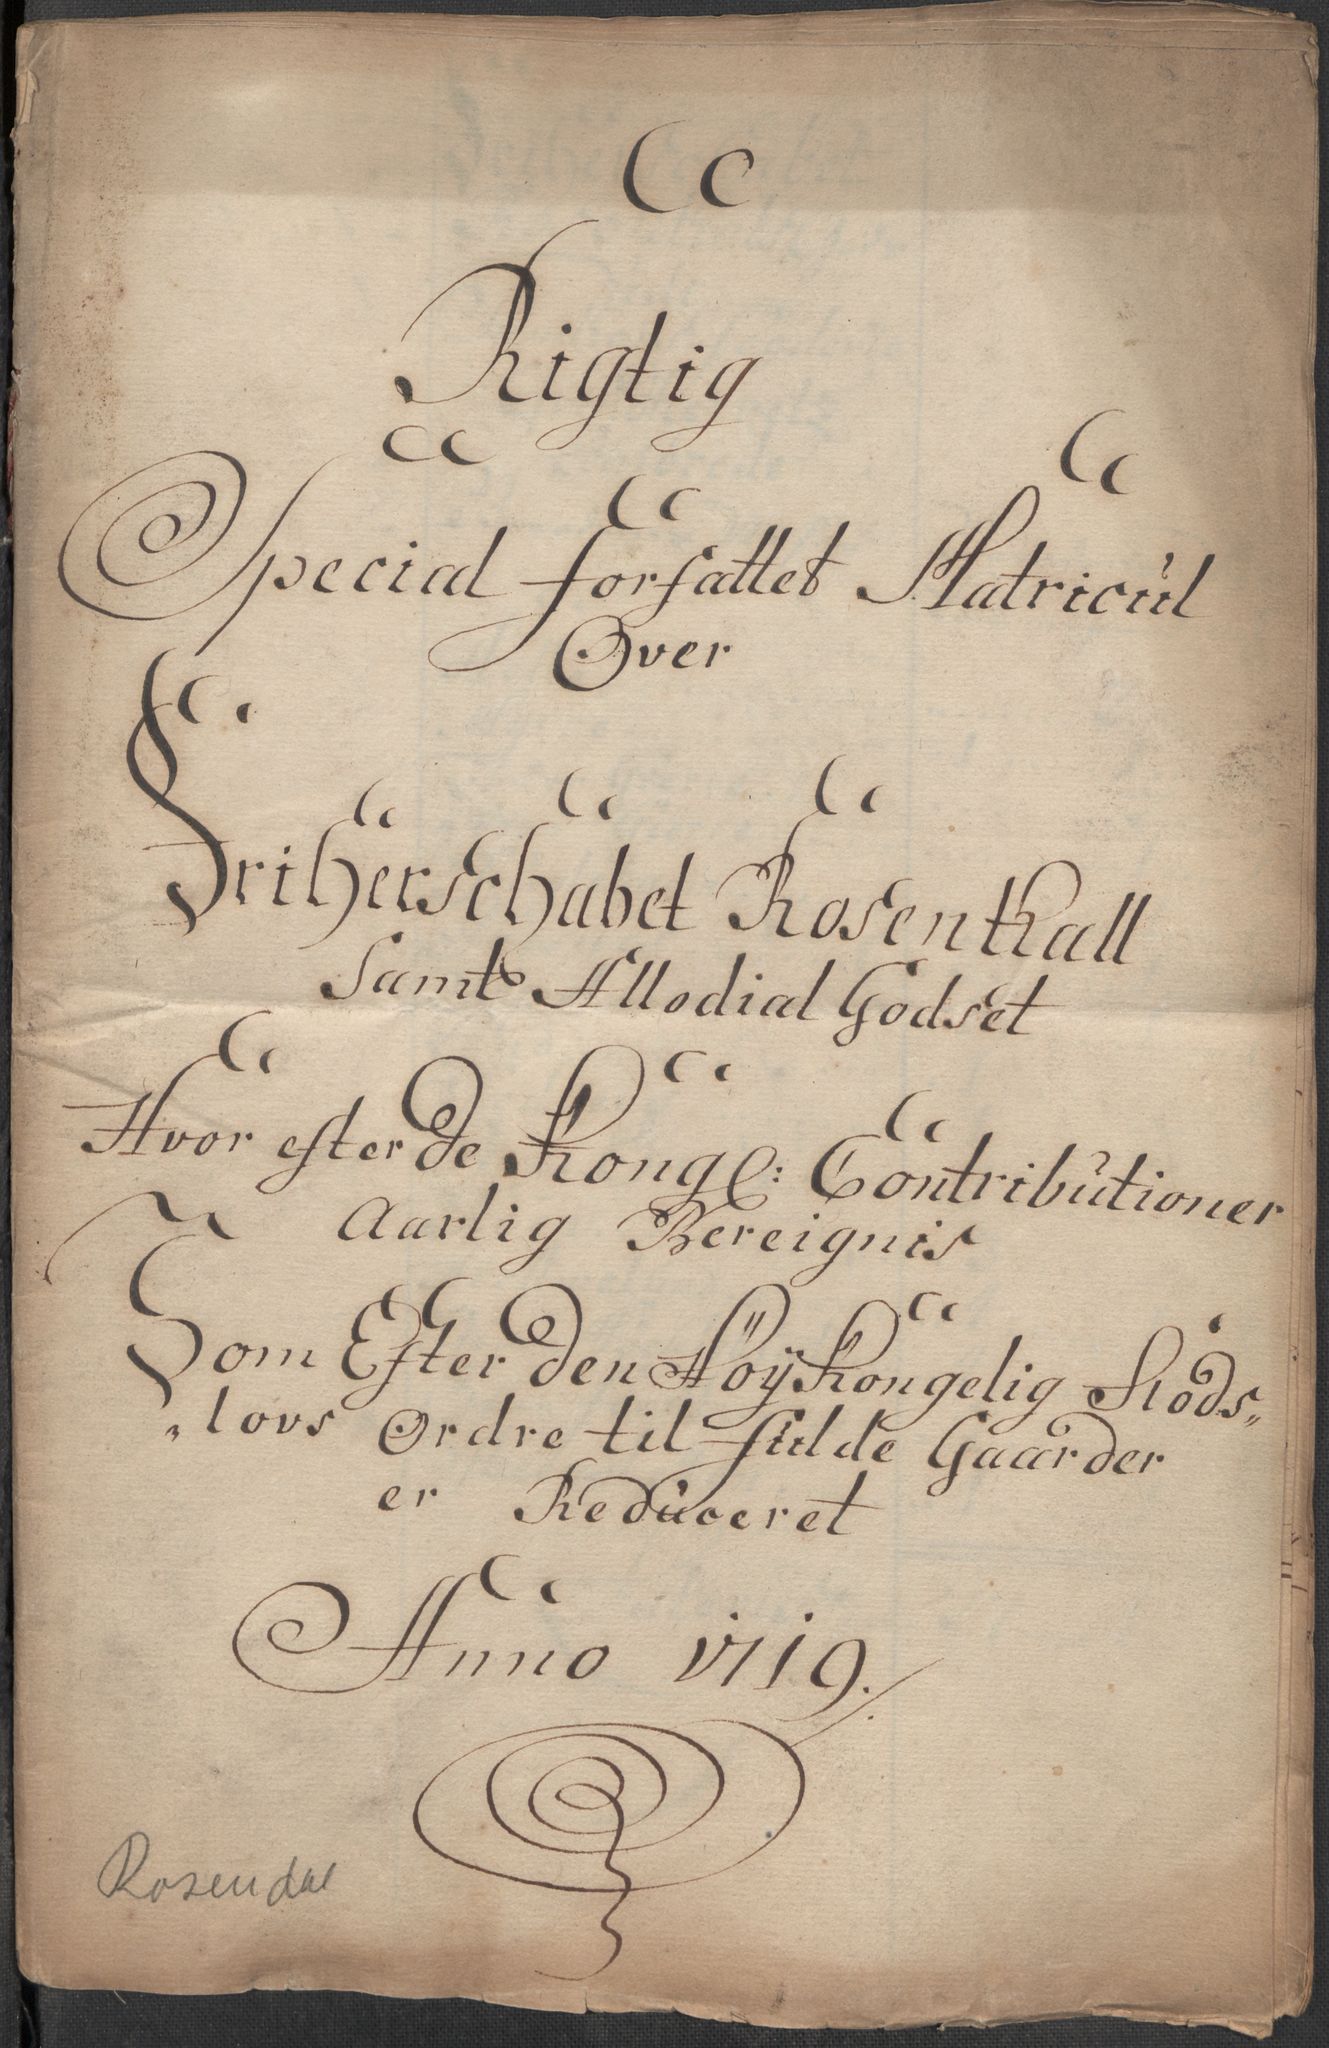 Rigtig
Special forfattet Matricul
Over
Friherschabet Rosenthall
Samt Allodial Godset
Hvor efter de Kongl: Contributioner
Aarlig Bereignis
Som Efter den Höy Kongelig Slods„
„lovs Ordre til fulde Gaarder
er Reduceret
Anno 1719.
Rosendal